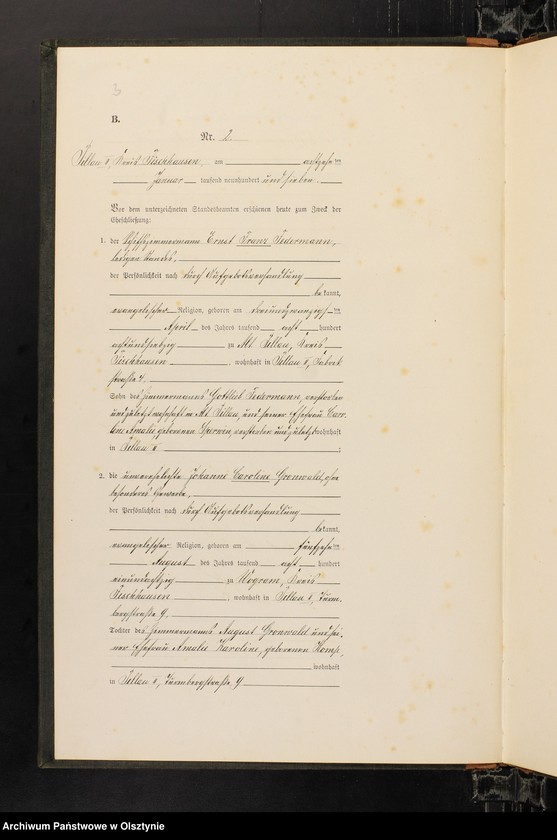 3
B.
Nr. 2.
Pillau II, Kreis Fischhausen, am achtzehn ten
Januar tausend neunhundert und sieben.
Vor dem unterzeichneten Standesbeamten erschienen heute zum Zweck der
Eheschließung:
1. der Schiffszimmermann Ernst Franz Federmann,
ledigen Standes,
der Persönlichkeit nach durch Aufgebotsverhandlung
bekannt,
evangelischer Religion, geboren am dreiundzwanzigs ten
April des Jahres tausend acht hundert
achtundsiebzig zu Alt Pillau, Kreis
Fischhausen, wohnhaft in Pillau II,
straße 4.
Sohn des Zimmermanns Gottlieb Federmann, verstorben
und zuletzt wohnhaft in Alt Pillau, und seiner Ehefrau
Amalie geborenen verstorben und zuletzt wohnhaft
in Pillau II;
2. die unverehelichte Johanne Caroline Gronwald, ohne
besonderes Gewerbe,
der Persönlichkeit nach durch Aufgebotsverhandlung
bekannt,
evangelischer Religion, geboren am fünfzehn ten
August des Jahres tausend acht hundert
neunundachtzig zu Wogram, Kreis
Fischhausen, wohnhaft in Pillau II, Turm-
bergstraße 9,
Tochter des Zimmermanns August Gronwald und sei-
ner Ehefrau Amalie Karoline, geborenen
wohnhaft
in Pillau II, Turmbergstraße 9
Archiwum Państwowe w Olsztynie